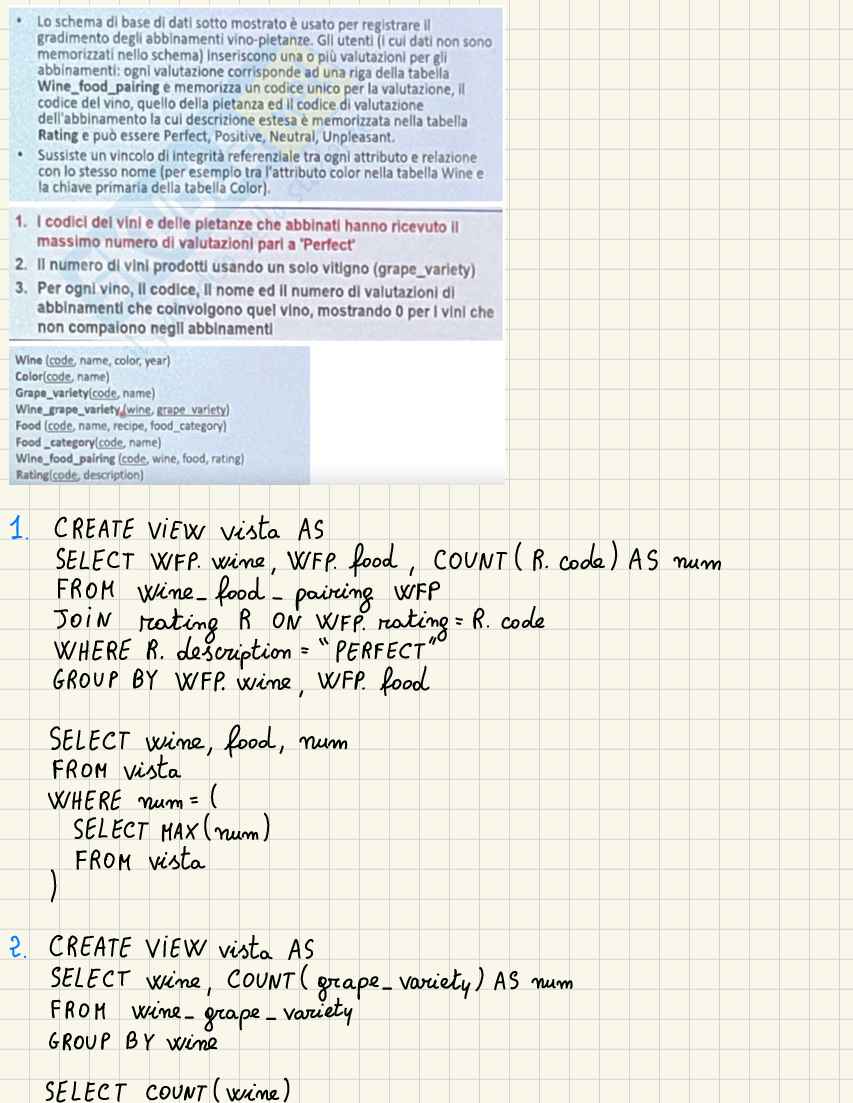 • Lo schema di base di dati sotto mostrato è usato per registrare il
gradimento degli abbinamenti vino-pietanze. Gli utenti (i cui dati non sono
memorizzati nello schema) inseriscono una o più valutazioni per gli
abbinamenti: ogni valutazione corrisponde ad una riga della tabella
Wine_food_pairing e memorizza un codice unico per la valutazione, il
codice del vino, quello della pietanza ed il codice di valutazione
dell'abbinamento la cui descrizione estesa è memorizzata nella tabella
Rating e può essere Perfect, Positive, Neutral, Unpleasant.
• Sussiste un vincolo di integrità referenziale tra ogni attributo e relazione
con lo stesso nome (per esempio tra l'attributo color nella tabella Wine e
la chiave primaria della tabella Color).
1. I codici dei vini e delle pietanze che abbinati hanno ricevuto il
massimo numero di valutazioni pari a 'Perfect'
2. Il numero di vini prodotti usando un solo vitigno (grape_variety)
3. Per ogni vino, il codice, il nome ed il numero di valutazioni di
abbinamenti che coinvolgono quel vino, mostrando 0 per i vini che
non compaiono negli abbinamenti
Wine (code, name, color, year)
Color(code, name)
Grape_variety(code, name)
Wine_grape_variety (wine, grape_variety)
Food (code, name, recipe, food_category)
Food _category(code, name)
Wine_food_pairing (code, wine, food, rating)
Rating(code, description)
1. CREATE VIEW vista AS
SELECT WFP. wine, WFP. food, COUNT( R. code) AS num
FROM wine_food_pairing WFP
JOIN rating R ON WFP. rating = R. code
WHERE R. description = "PERFECT"
GROUP BY WFP. wine, WFP. food
SELECT wine, food, num
FROM vista
WHERE num = (
SELECT MAX(num)
FROM vista
)
2. CREATE VIEW vista AS
SELECT wine, COUNT( grape_variety) AS num
FROM wine_grape_variety
GROUP BY wine
SELECT COUNT(wine)